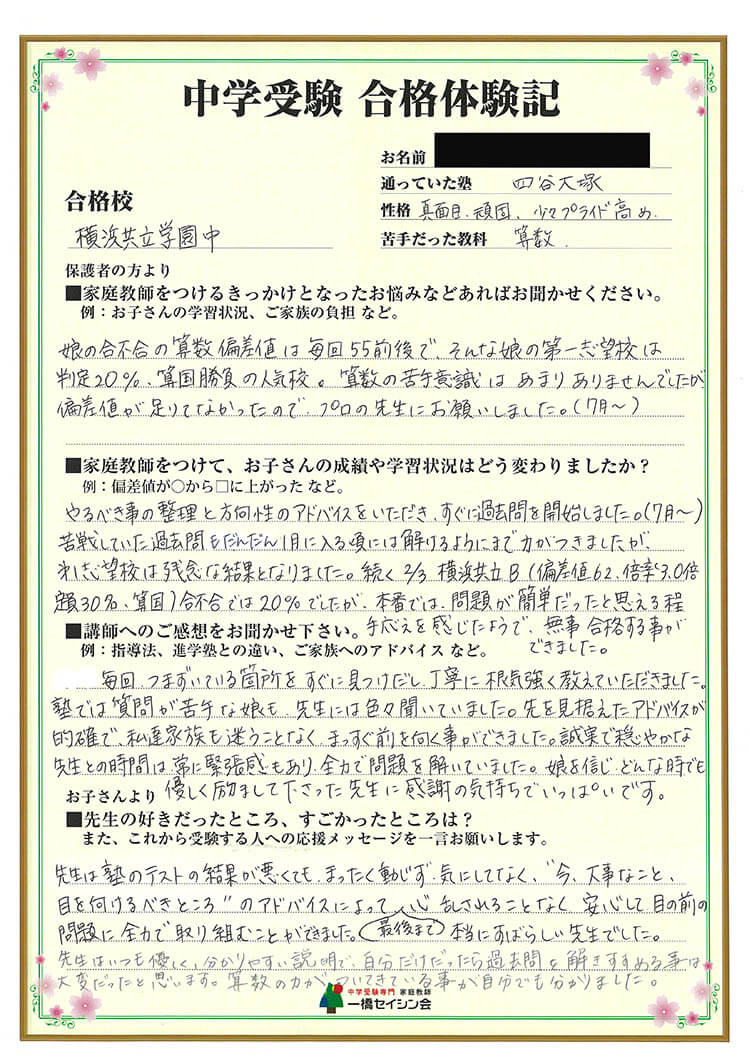 中学受験 合格体験記
お名前
通っていた塾 四谷大塚
合格校
性格 真面目、頑固、少々プライド高め。
横浜共立学園中
苦手だった教科 算数。
保護者の方より
■家庭教師をつけるきっかけとなったお悩みなどあればお聞かせください。
例：お子さんの学習状況、ご家族の負担 など。
娘の合不合の算数偏差値は毎回55前後で、そんな娘の第一志望校は
判定20%、算国勝負の人気校。算数の苦手意識はあまりありませんでしたが
偏差値が足りてなかったので、プロの先生にお願いしました。(7月～)
■家庭教師をつけて、お子さんの成績や学習状況はどう変わりましたか？
例：偏差値が○から□に上がった など。
やるべき事の整理と方向性のアドバイスをいただき、すぐに過去問を開始しました。(7月～)
苦戦していた過去問もだんだん1月に入る頃には解けるようにまで力がつきましたが、
志望校は残念な結果となりました。続く2/3 横浜共立B(偏差値62、倍率3.0倍
30名、算国)合不合では20%でしたが、本番では、問題が簡単だったと思える程
手応えを感じたようで、無事合格する事が
できました。
■講師へのご感想をお聞かせ下さい。
例：指導法、進学塾との違い、ご家族へのアドバイス など。
毎回、つまずいている箇所をすぐに見つけだし、丁寧に根気強く教えていただきました。
塾では質問が苦手な娘も、先生には色々聞いていました。先を見据えたアドバイスが
的確で、私達家族も迷うことなくまっすぐ前を向く事ができました。誠実で穏やかな
先生との時間は常に緊張感もあり、全力で問題を解いていました。娘を信じどんな時でも
優しく励まして下さった先生に感謝の気持ちでいっぱいです。
お子さんより
■先生の好きだったところ、すごかったところは？
また、これから受験する人への応援メッセージを一言お願いします。
先生は塾のテストの結果が悪くても、まったく動じず、気にしてなく、“今、大事なこと、
目を向けるべきところ”のアドバイスによって、心乱されることなく安心して目の前の
問題に最後まで全力で取り組むことができました。本当にすばらしい先生でした。
先生はいつも優しく、分かりやすい説明で、自分だけだったら過去問を解きすすめる事は
大変だったと思います。算数の力がついてきている事が自分でも分かりました。
中学受験専門 家庭教師
一橋セイシン会